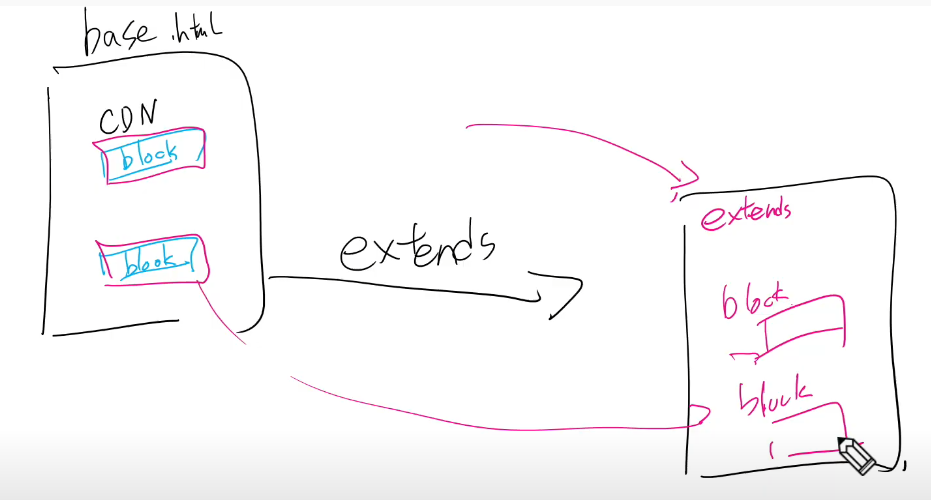 base.html
CDN
block
block
extends
extends
block
block